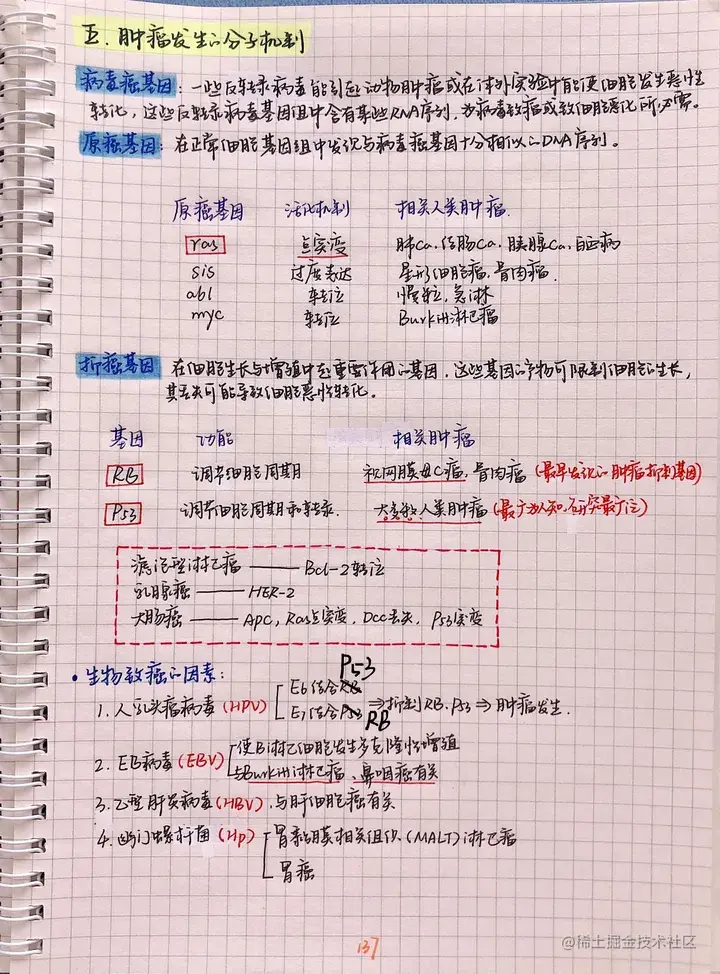 五. 肿瘤发生的分子机制
病毒癌基因: 一些反转录病毒能引起动物肿瘤或在体外实验中能使细胞发生恶性
转化, 这些反转录病毒基因组中含有某些RNA序列, 为病毒致癌或致细胞恶化所必需。
原癌基因: 在正常细胞基因组中发现与病毒癌基因十分相似的DNA序列。
原癌基因 活化机制 相关人类肿瘤
ras 点突变 肺Ca, 结肠Ca, 胰腺Ca, 白血病
sis 过度表达 星形细胞瘤, 骨肉瘤
abl 转位 慢粒, 急淋
myc 转位 Burkitt淋巴瘤
抑癌基因 在细胞生长与增殖中起重要作用的基因, 这些基因的产物可限制细胞的生长,
其丢失可能导致细胞恶性转化。
基因 功能 相关肿瘤
RB 调节细胞周期 视网膜母C瘤, 骨肉瘤 (最早发现的肿瘤抑制基因)
P53 调节细胞周期和转录 大多数人类肿瘤 (最广为人知, 研究最广泛)
滤泡型淋巴瘤 —— Bcl-2转位
乳腺癌 —— HER-2
大肠癌 —— APC, Ras点突变, Dcc丢失, P53突变
• 生物致癌的因素:
P53
1. 人乳头瘤病毒 (HPV) E6结合RB
E7结合P53 RB ⇒抑制RB. P53 ⇒ 肿瘤发生.
2. EB病毒 (EBV) 使B淋巴细胞发生多克隆性增殖
与Burkitt淋巴瘤、鼻咽癌有关
3. 乙型肝炎病毒 (HBV), 与肝细胞癌有关
4. 幽门螺杆菌 (Hp) 胃黏膜相关组织 (MALT) 淋巴瘤
胃癌
137
@稀土掘金技术社区